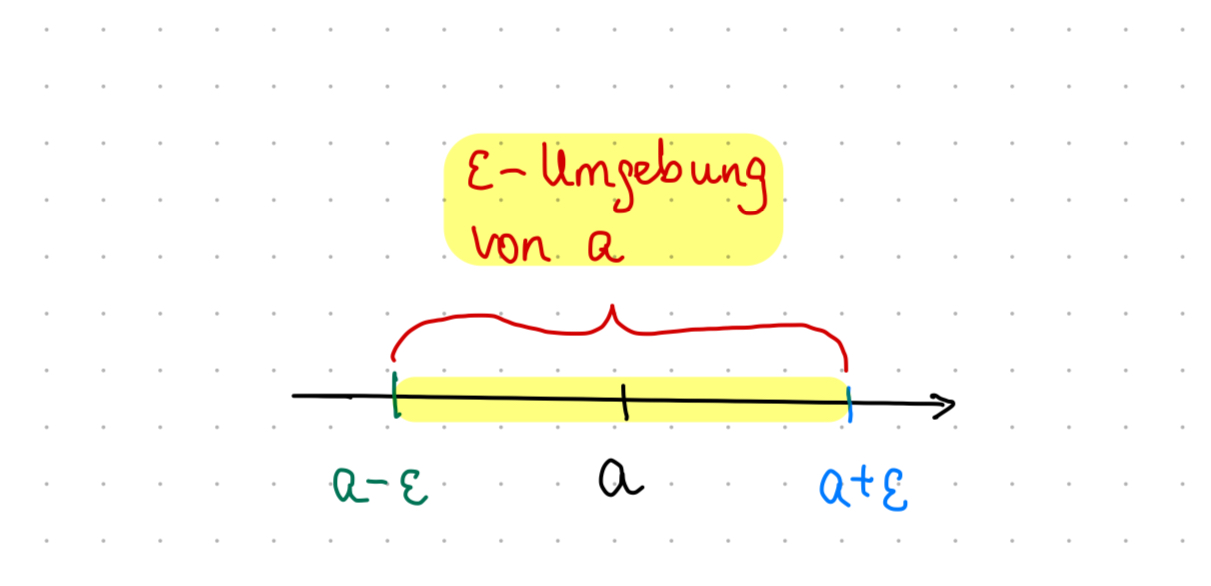 ε-Umgebung
von a
a-ε a a+ε